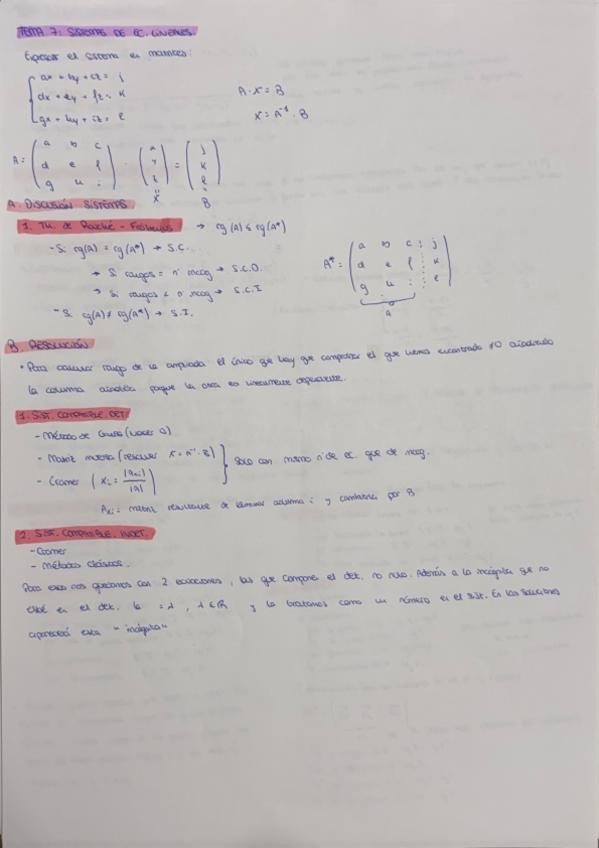 TEMA 7: SISTEMAS DE EC. LINEALES.
Expresar el sistema en matrices:
ax + by + cz = j
dx + ey + fz = k
gx + hy + iz = l
A · X = B
X = A⁻¹ · B
A = ( a b c ; d e f ; g h i ) · ( x ; y ; z ) = ( j ; k ; l )
X B
A. DISCUSIÓN SISTEMAS
1. TH. de Rouché - Fröbenius → rg(A) ≤ rg(A*)
- Si rg(A) = rg(A*) → S.C.
→ Si rangos = nº incog → S.C.D.
→ Si rangos < nº incog → S.C.I
- Si rg(A) ≠ rg(A*) → S.I.
A* = ( a b c j ; d e f k ; g h i l )
A
B. RESOLUCIÓN
• Para calcular rango de la ampliada el único que hay que comprobar el que hemos encontrado ≠0 añadiendo
la columna añadida porque la otra es linealmente dependiente.
1. SIST. COMPATIBLE. DET
- Método de Gauss (hacer 0)
- Matriz inversa (resolver X = A⁻¹ · B)
- Cramer ( Xi = |Axi| / |A| )
Solo con mismo nº de ec. que de incog.
Axi = matriz resultante de eliminar columna i y cambiarla por B
2. SIST. COMPATIBLE. INDET.
- Cramer
- Métodos clásicos.
Para eso nos quedamos con 2 ecuaciones, las que compone el det. no nulo. Además a la incógnita que no
esté en el det. la = λ, λ ∈ ℝ y la tratamos como un número en el sist. En las soluciones
aparecerá esta "incógnita"